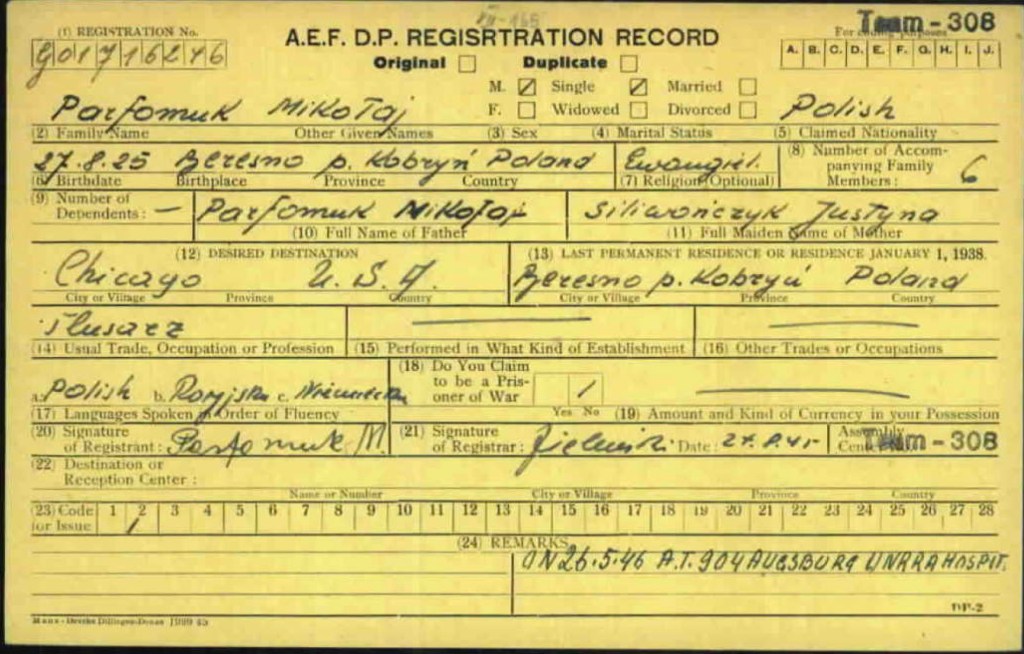 Team-308
(1) REGISTRATION No. A.E.F. D.P. REGISRTRATION RECORD For coding purposes
G01716246 Original Duplicate A. B. C. D. E. F. G. H. I. J.
M. Single Married
Parfomuk Mikołaj F. Widowed Divorced Polish
(2) Family Name Other Given Names (3) Sex (4) Marital Status (5) Claimed Nationality
27.8.25 Beresno p. Kobryń Poland Ewangiel. (8) Number of Accompanying Family Members: 6
(6) Birthdate Birthplace Province Country (7) Religion (Optional)
(9) Number of Dependents: — Parfomuk Mikołaj Siliwończyk Justyna
(10) Full Name of Father (11) Full Maiden Name of Mother
(12) DESIRED DESTINATION (13) LAST PERMANENT RESIDENCE OR RESIDENCE JANUARY 1, 1938.
Chicago U.S.A. Beresno p. Kobryń Poland
City or Village Province Country City or Village Province Country
ślusarz
(14) Usual Trade, Occupation or Profession (15) Performed in What Kind of Establishment (16) Other Trades or Occupations
a. Polish b. c. (18) Do You Claim to be a Prisoner of War 1
(17) Languages Spoken in Order of Fluency Yes No (19) Amount and Kind of Currency in your Possession
(20) Signature of Registrant: Parfomuk M. (21) Signature of Registrar: Date: Assembly Center No. Team-308
(22) Destination or Reception Center:
Name or Number City or Village Province Country
(23) Code for Issue 1 2 3 4 5 6 7 8 9 10 11 12 13 14 15 16 17 18 19 20 21 22 23 24 25 26 27 28
(24) REMARKS
ON 26.5.46 A.T. 904 AUGSBURG UNRRA HOSPIT.
DP-2